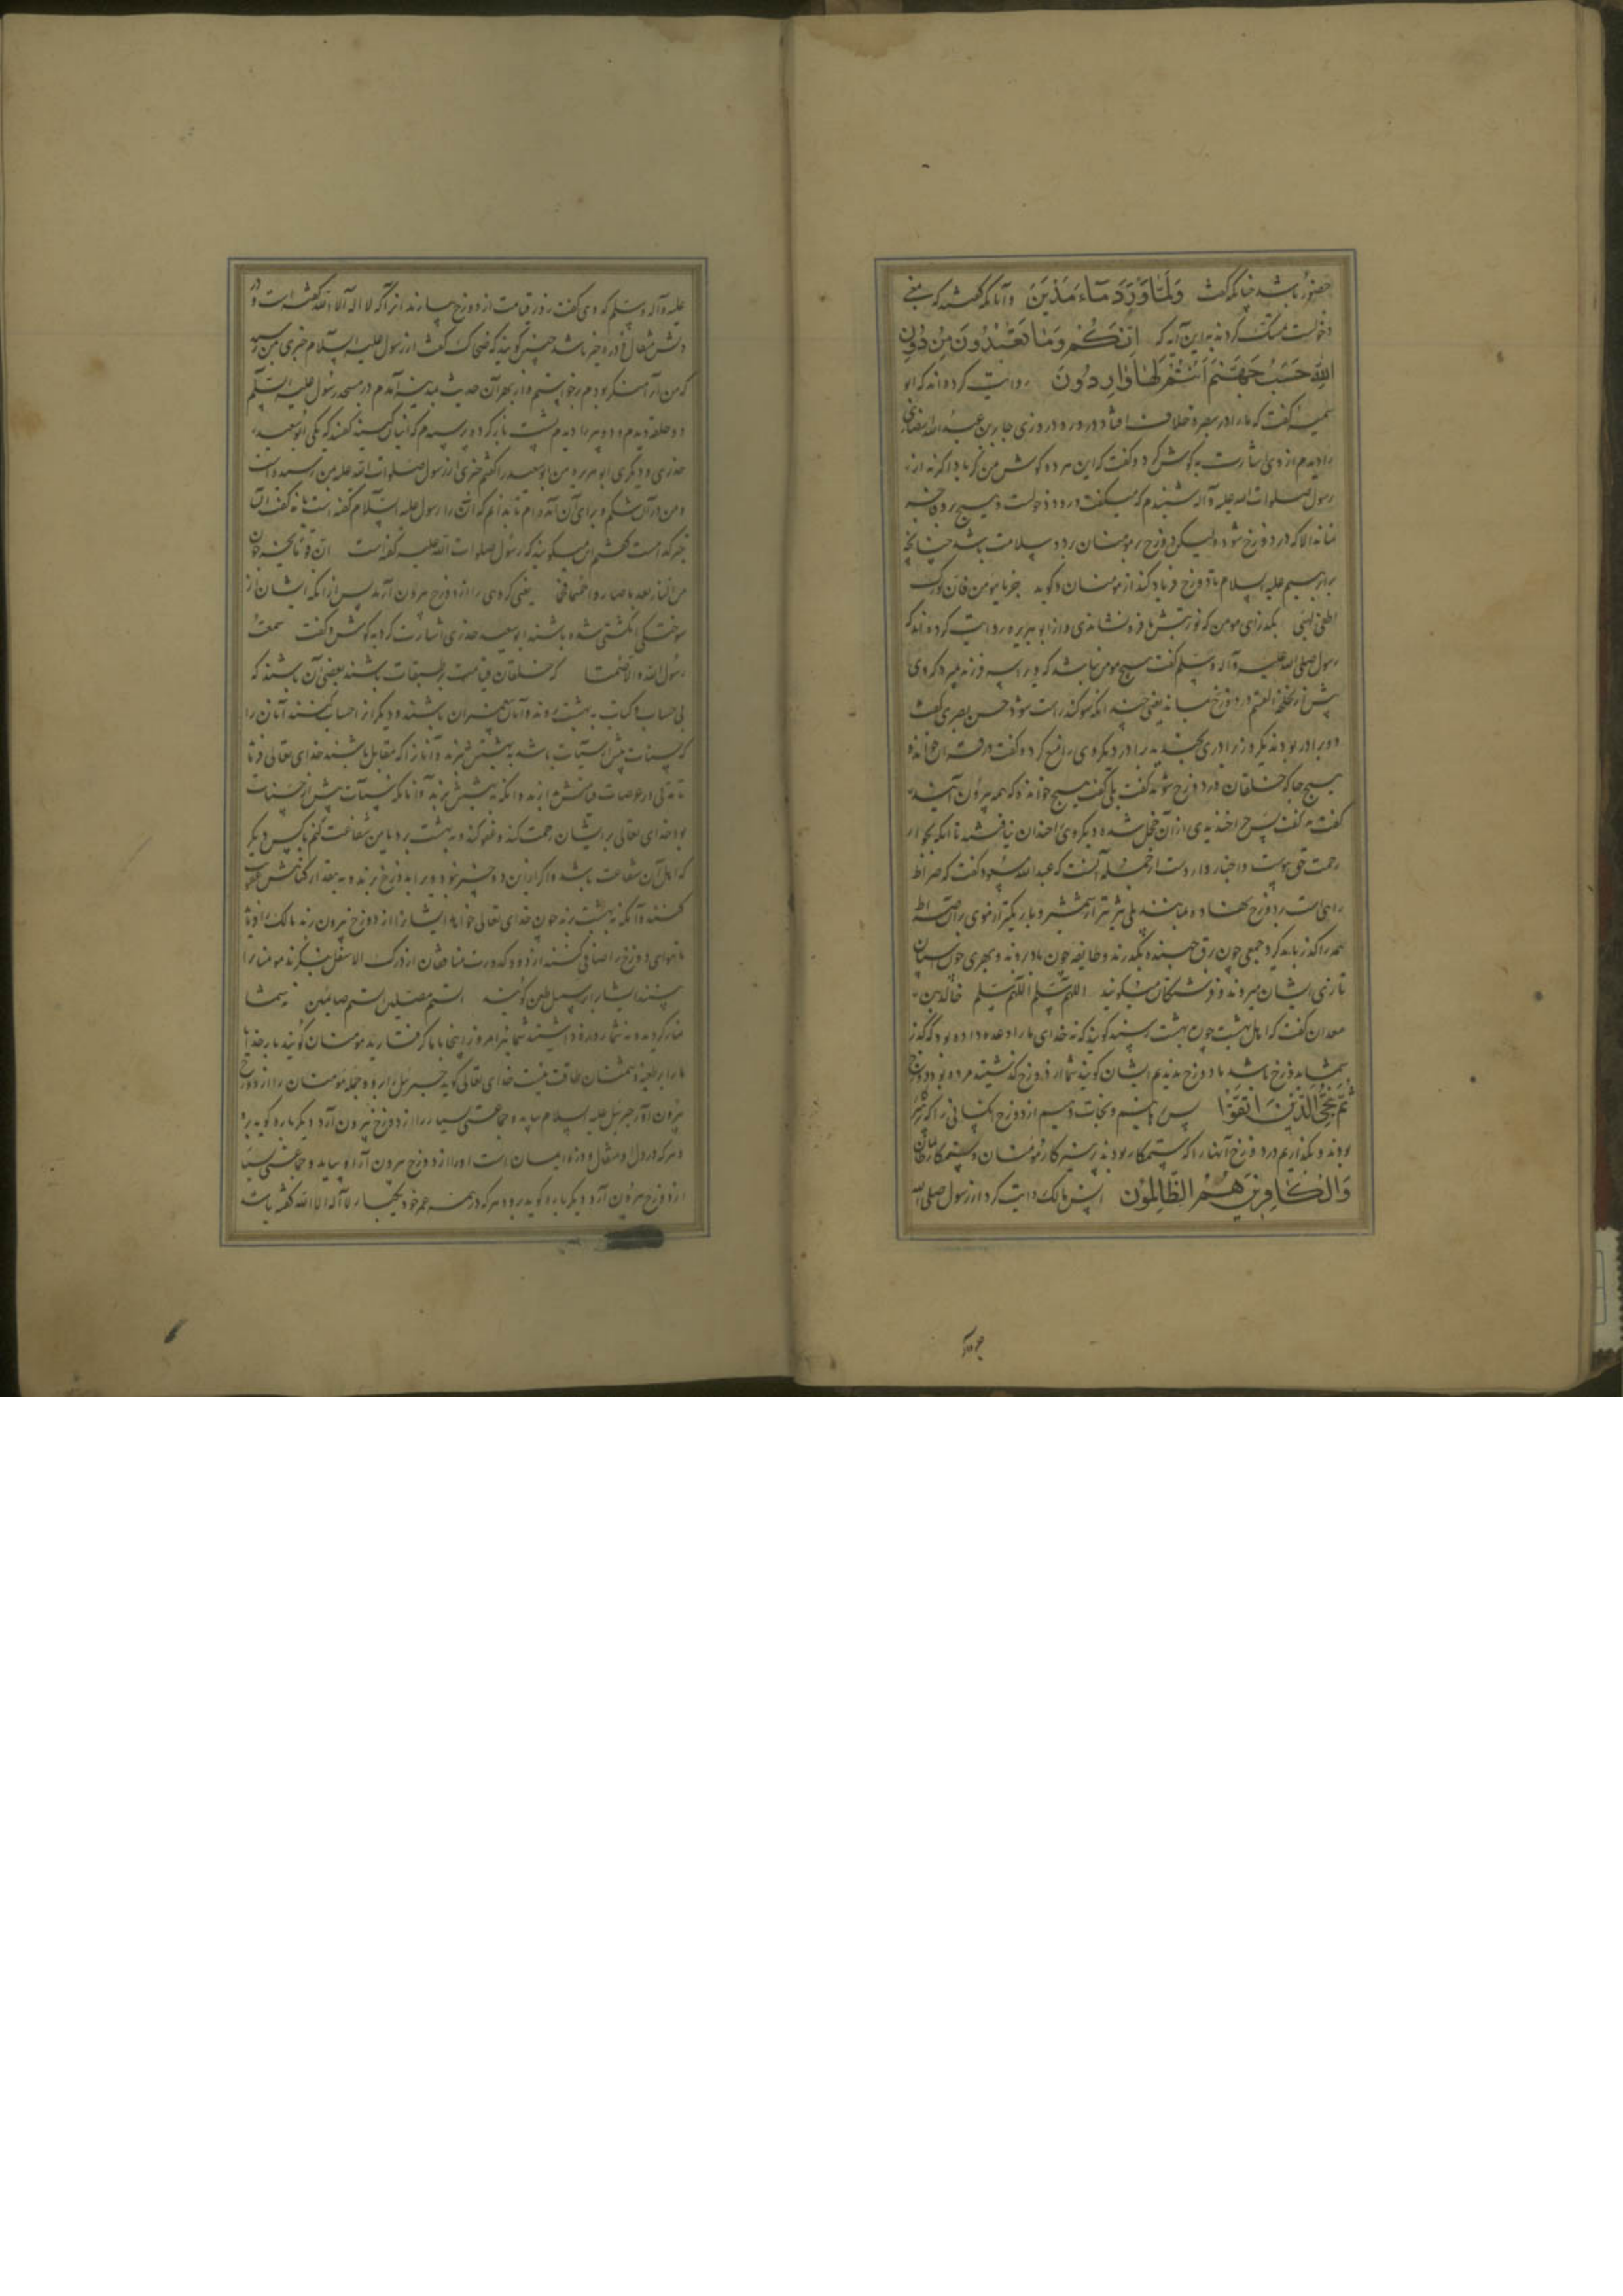 حضور باشد چنانکه گفت وَلَمَّا وَرَدَ مَاءَ مَدْيَنَ و آنانکه گفتند که بمعنی
دخولست تمسک کردند براین آیه که اِنَّكُمْ وَمَا تَعْبُدُونَ مِنْ دُونِ
اللّهِ حَصَبُ جَهَنَّمَ اَنْتُمْ لَهَا وَارِدُونَ روایت کرده‌اند که ابو
سمیه گفت که ما را در بصره خلاف افتاد در ورود روزی جابر بن عبد الله انصاری
را دیدم از وی اشارت به گوش کرد و گفت که این هر دو گوش من کر باد اگر نه از
رسول صلوات الله علیه و آله شنیدم که میگفت ورود دخولست و هیچ بر و فاجر
نماند الا که در دوزخ شود ولیکن دوزخ بر مومنان برد و سلامت باشد چنانچه
بر ابراهیم علیه السلام تا دوزخ فریاد کند از مومنان و گوید جز یا مومن فان نورک
اطفی لهبی بگذر ای مومن که نور تو تبش ما فرو نشاندی و از ابو هریره روایت کرده‌اند که
رسول صلی الله علیه و آله وسلم گفت هیچ مومن نباشد که ویرا سه فرزند بمیرد که وی
پیش از تحلة القسم در دوزخ بماند یعنی چندانکه سوگند راست شود حسن بصری گفت
دو برادر بودند یک روز برادری بخندید برادر دیگر وی را منع کرد و گفت در قرآن خوانده
هیچ جا که خلقان در دوزخ شوند گفت بلی گفت هیچ خوانده که همه بیرون آیند
گفت نه گفت پس چرا خندیدی از آن خجل شده دیگر وی را خندان نیافتند تا آنکه بجوار
رحمت حق پیوست و اخبار وارد است از جمله آنست که عبد الله مسعود گفت که صراط
راهی است بر دوزخ نهاده مانند پلی تیزتر از شمشیر و باریکتر از موی بر آن صراط
همه را گذر باید کرد جمعی چون برق جهنده بگذرند و طایفه چون باد روند و بهری چون اسپان
تازی ایشان میروند و فرشتگان میگویند اللهم سلم اللهم سلم خالد بن
معدان گفت که اهل بهشت چون به بهشت رسند گویند که نه خدای ما را وعده داده بود که گذر
شما به دوزخ باشد ما دوزخ ندیدیم ایشان گویند شما از دوزخ گذشتید مرده بود دوزخ
ثُمَّ نُنَجِّي الَّذِينَ اتَّقَوْا پس برهانیم و نجات دهیم از دوزخ آنکسانی را که پرهیزگار
بودند و بگذاریم در دوزخ آنها را که ستمکار بودند پرهیزکار مؤمنان و ستمکار کافران
وَالْكَافِرِينَ هُمُ الظَّالِمُونَ انس مالک روایت کرد از رسول صلی الله
علیه و آله وسلم که وی گفت روز قیامت از دوزخ برآرند آنرا که لا اله الا الله گفته است و در
دلش مثقال ذره خیر باشد چنین گویند که ضحاک گفت از رسول علیه السلام خبری بمن رسید
که من آنرا منکر بودم برخواستم و از بهر آن حدیث بمدینه آمدم در مسجد رسول علیه السلام
دو حلقه دیدم و دو پیر را دیدم پشت باز کرده پرسیدم که اینان کیستند گفتند که یکی ابو سعید
خدری و دیگری ابو هریره من ابو سعید را گفتم خبری از رسول صلوات الله علیه بمن رسیده است
و من در آن بشکم و برای آن آمده‌ام تا بدانم که آن را رسول علیه السلام گفته است یا نه گفت آن
خبر کدامست گفتم این میگویند که رسول صلوات الله علیه گفته است ان قوما یخرجون
من النار بعد ما صاروا فحما یعنی گروهی را از دوزخ بیرون آرند پس از آنکه ایشان از
سوختگی انگشتی شده باشند ابو سعید خدری اشارت کرد به گوش و گفت سمعت
رسول الله و الا فصمتا که خلقان قیامت بر طبقات باشند بعضی آن باشند که
بی حساب و کتاب به بهشت روند و آنان پیغمبران باشند و دیگر از احساب کنند آنان را
که حسنات بیش از سیئات باشد به بهشتش فرستند و آنانرا که مقابل باشند خدای تعالی فرماید
تا مدتی در عرصات قیامتش بدارند و آنکه به بهشتش برند و آنانکه سیئات بیش از حسنات
بود خدای تعالی بر ایشان رحمت کند و عفو کند و به بهشت برد یا من شفاعت کنم یا کسی دیگر
که اهل آن شفاعت باشد و اگر ازین دو چیز نبود ویرا بدوزخ برند و به مقدار گناهش عقوبت
کنند و آنگه به بهشت برند چون خدای تعالی خواهد ایشانرا از دوزخ بیرون برند مالک را فرماید
تا هوای دوزخ را صافی کنند از دود و کدورت منافقان از درک الاسفل بنگرند مومنانرا
بینند ایشانرا بر سبیل طعن گویند الستم مصلین الستم صایمین نه شما
نماز کردید و نه شما روزه داشتید شما نیز امروز اینجا با ما گرفتارید مومنان گویند بار خدایا
ما را بر طعنه دشمنان طاقت نیست خدای تعالی گوید جبرئیل را برو و جمله مومنان را از دوزخ
بیرون آور جبرئیل علیه السلام بیاید و جماعتی بسیار را از دوزخ بیرون آرد دیگر باره گوید برو
و هر که در دل او مثقال ذره ایمان است او را از دوزخ بیرون آر او بیاید و جماعتی بسیار
از دوزخ بیرون آرد دیگر باره گوید برو و هر که در همه عمر خود یکبار لا اله الا الله گفته باشد